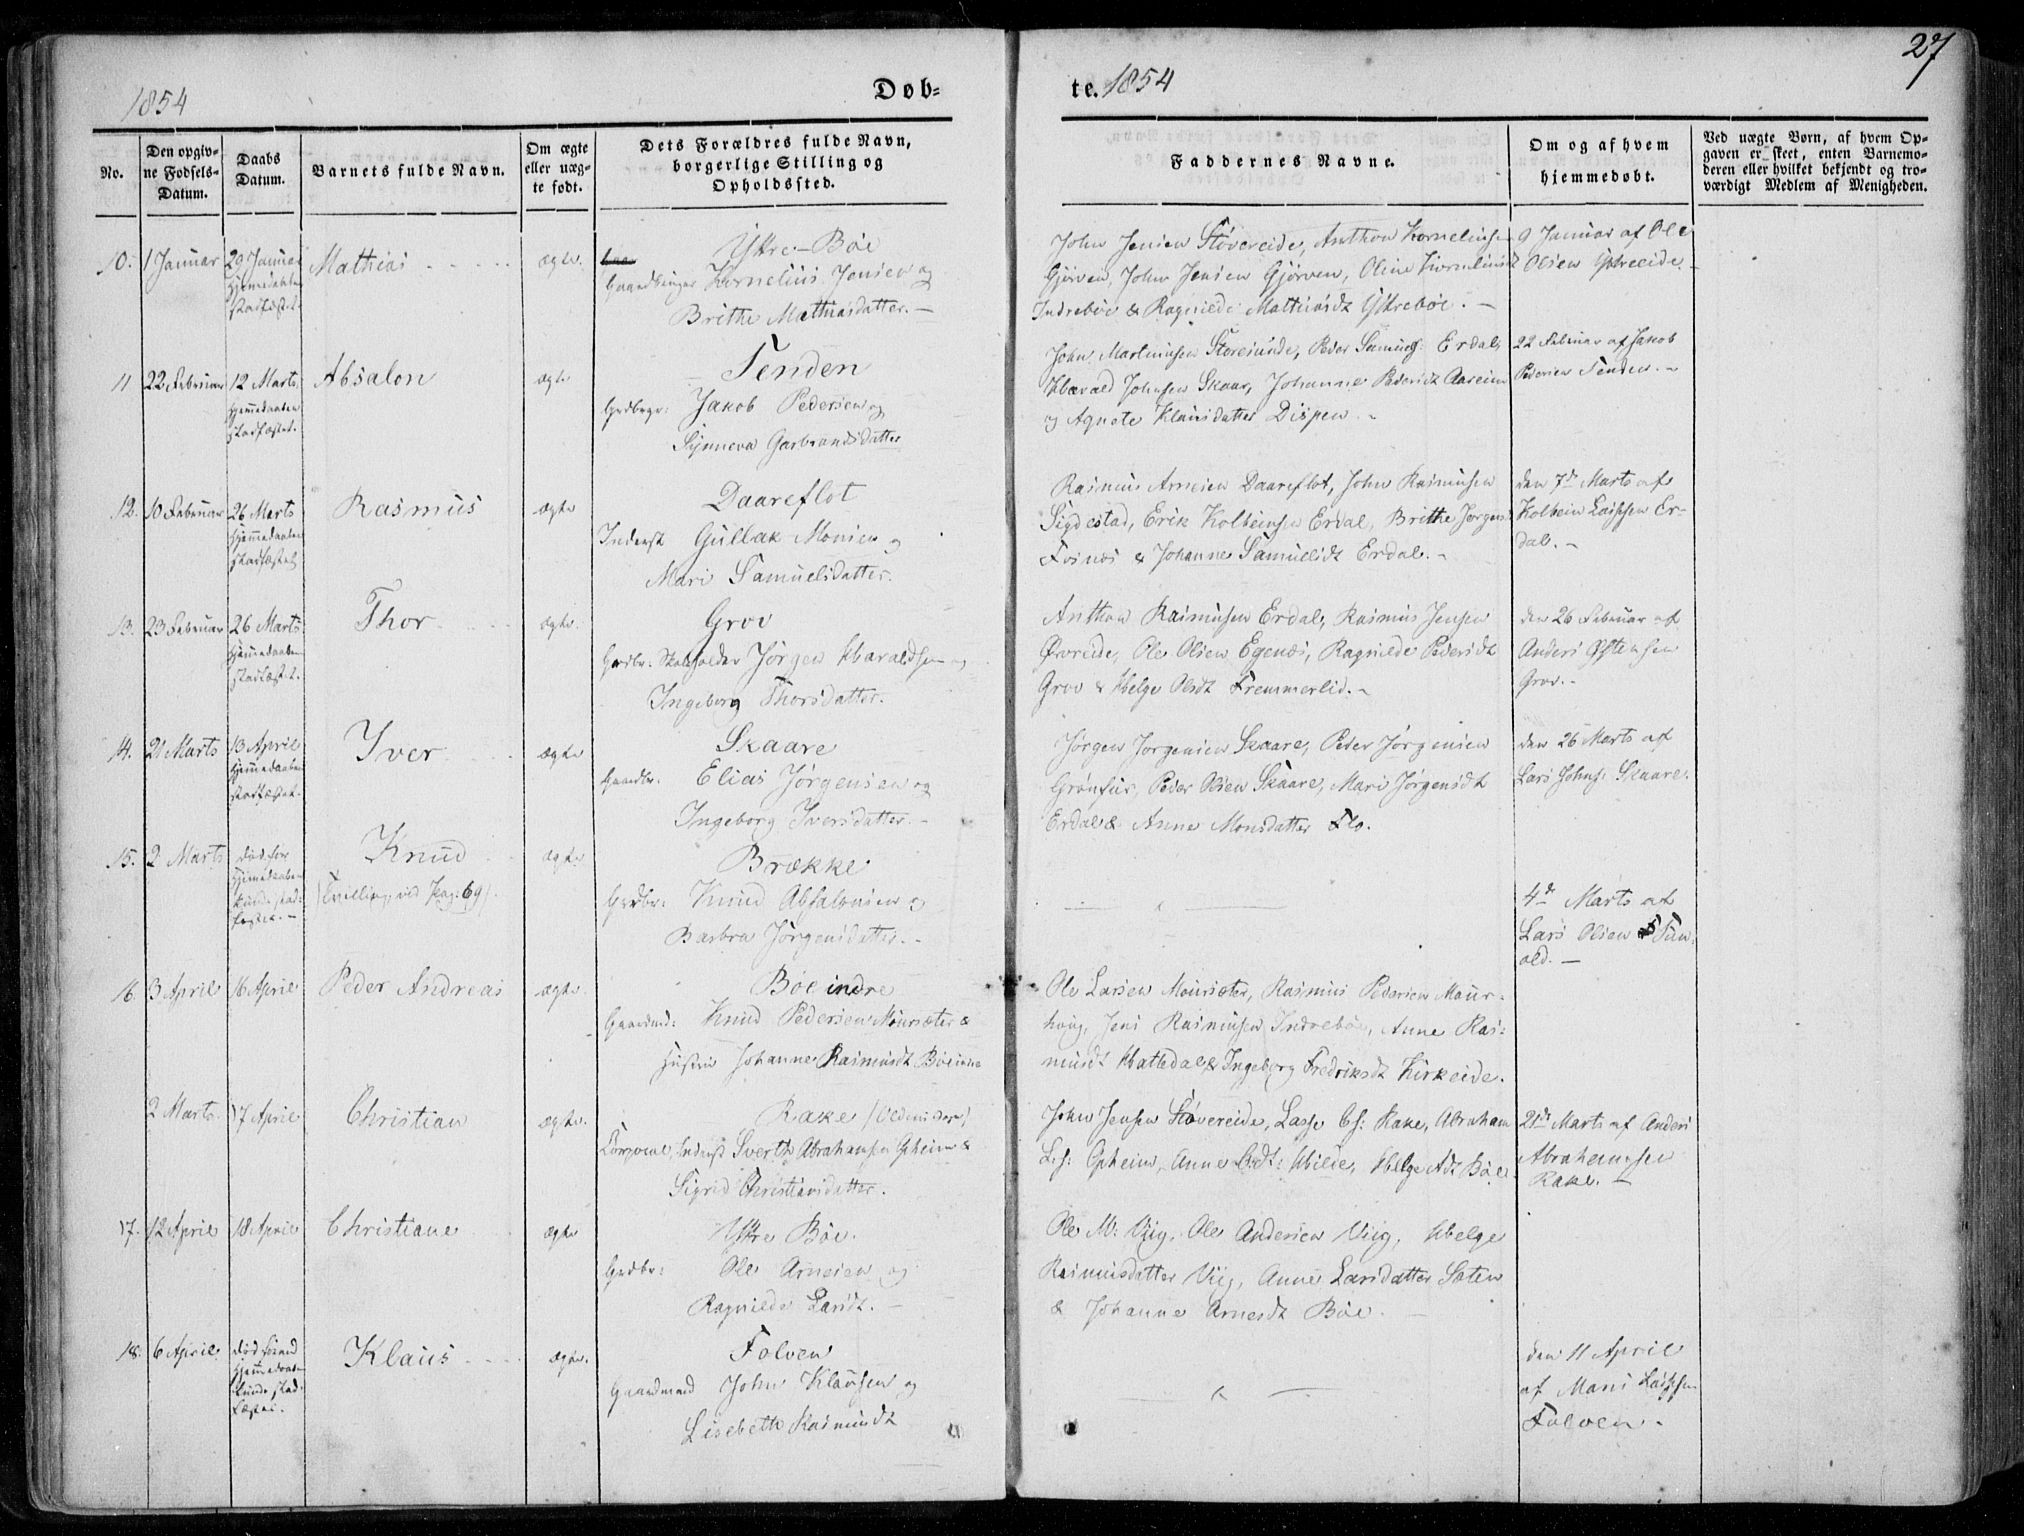 27
1854
Døb-
te. 1854
No.
Den opgiv-
ne Fødsels-
Datum.
Daabs
Datum.
Barnets fulde Navn.
Om ægte
eller uæg-
te født.
Dets Forældres fulde Navn,
borgerlige Stilling og
Opholdssted.
Faddernes Navne.
Om og af hvem
hjemmedøbt.
Ved uægte Børn, af hvem Op-
gaven er skeet, enten Barnemo-
deren eller hvilket bekjendt og tro-
værdigt Medlem af Menigheden.
10. 1 Januar 29 Januar Mathias ægte.
Hjemmedaaben
stadfæstet.
Yttre-Bøe
Gaardbruger Kornelius Jensen og
Brithe Mathiasdatter. -
John Jensen Støvereide, Anthon Kornelius
Gjørven, John Jensen Gjørven, Oline Korneliusdt
Indrebøe & Ragnilde Mathiasdt Yttrebøe. -
9 Januar af Ole
Olsen
11 22 Februar 12 Marts Absalon ægte
Hjemmedaaben
stadfæstet.
Tenden
Grdbrgr: Jakob Pedersen og
Synneva Garbrandsdatter
John Martinusen Storesunde, Peder Erdal,
Harald Johnsen Skaar, Johanne Pedersdt Aareim
og Agnete Klausdatter Dispen. -
22 Februar af Jakob
Pedersen Tenden. -
12. 10 Februar 26 Marts Rasmus ægte
Hjemmedaaben
stadfæstet
Daareflot
Inderst Gullak Monsen og
Mari Samuelsdatter.
Rasmus Arnesen Daareflot, John Rasmusen
Sigdestad, Erik Kolbeinsen Erdal, Brithe Jørgens
Fosnæs & Johanne Samuelsdt Erdal. -
den 7de Marts af
Kolbein Lassesen Er-
dal. -
13. 23 Februar 26 Marts Thor ægte.
Hjemmedaaben
stadfæstet.
Grov
Grdbr: Skoleholder Jørgen Haraldsen og
Ingeborg Thorsdatter.
Anthon Rasmusen Erdal, Rasmus Jensen
Øvreide, Ole Olsen Egenæs, Ragnilde Pedersdt
Grov & Helge Olsdt Fremmerlid. -
den 26 Februar af
Anders
Grov. -
14. 21 Marts 13 April Iver ægte
Hjemmedaaben
stadfæstet.
Skaare
Gaardbr. Elias Jørgensen og
Ingeborg Iversdatter -
Jørgen Jørgensen Skaare, Peder Jørgensen
Grønfur, Peder Olsen Skaare, Mari Jørgensdt
Erdal & Anne Monsdatter Flo.
den 26 Marts af
Lars Johns: Skaare.
15. 2 Marts død før Knud ægte
Hjemmedaaben
kunde stad-
fæstes. -
(Tvilling, vid Pag: 69).
Brække
Grdbr: Knud Absalonsen og
Barbra Jørgensdatter. -
4de Marts af
Lars Olsen Tun-
old. -
16. 3 April 16 April Peder Andreas ægte
Bøe indre
Gaardmd: Knud Pedersen Mouresæter &
Hustru Johanne Rasmusdt Bøeindre
Ole Larsen Mouresæter, Rasmus Pedersen Maur-
houg, Jens Rasmusen Indrebøe, Anne Ras-
musdt Hattedal & Ingeborg Fredriksdt Kirkeide.
2 Marts 17 April Christian ægte.
Rake (Oldens )
Inderst Sverth Abrahamsen Opheim &
Sigrid Christiansdatter.
John Jensen Støvereide, Lasse Cs: Rake, Abraham
L.s: Opheim, Anne Cdt: Hilde, Helge Adt Bøe.
21de Marts af Anders
Abrahamsen
Rake. -
17. 12 April 18 April Christiane ægte
Yttre Bøe.
Grdbr: Ole Arnesen og
Ragnilde Larsdt. -
Ole M: Viig, Ole Andersen Viig, Helge
Rasmusdatter Viig, Anne Larsdatter Soten
& Johanne Arnesdt Bøe. -
18. 6 April død førend Klaus ægte.
Hjemmedaaben
kunde stad-
fæstes.
Folven
Gaardmand John Klausen og
Lisebeth Rasmusdt
den 11 April
af Mons Lassesen
Folven. -